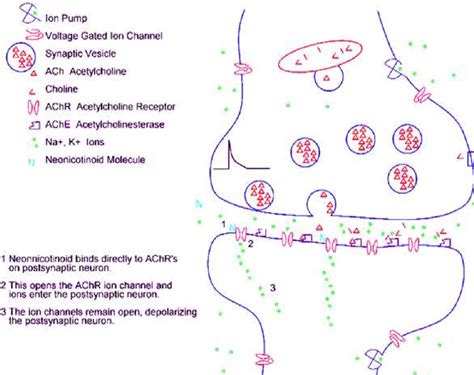 Ion Pump
Voltage Gated Ion Channel
Synaptic Vesicle
ACh Acetylcholine
Choline
AChR Acetylcholine Receptor
AChE Acetylcholinesterase
Na+, K+ Ions
N Neonicotinoid Molecule
N
N
N
1
2
3
1 Neonnicotinoid binds directly to AChR's
on postsynaptic neuron.
2 This opens the AChR ion channel and
ions enter the postsynaptic neuron.
3 The ion channels remain open, depolarizing
the postsynaptic neuron.